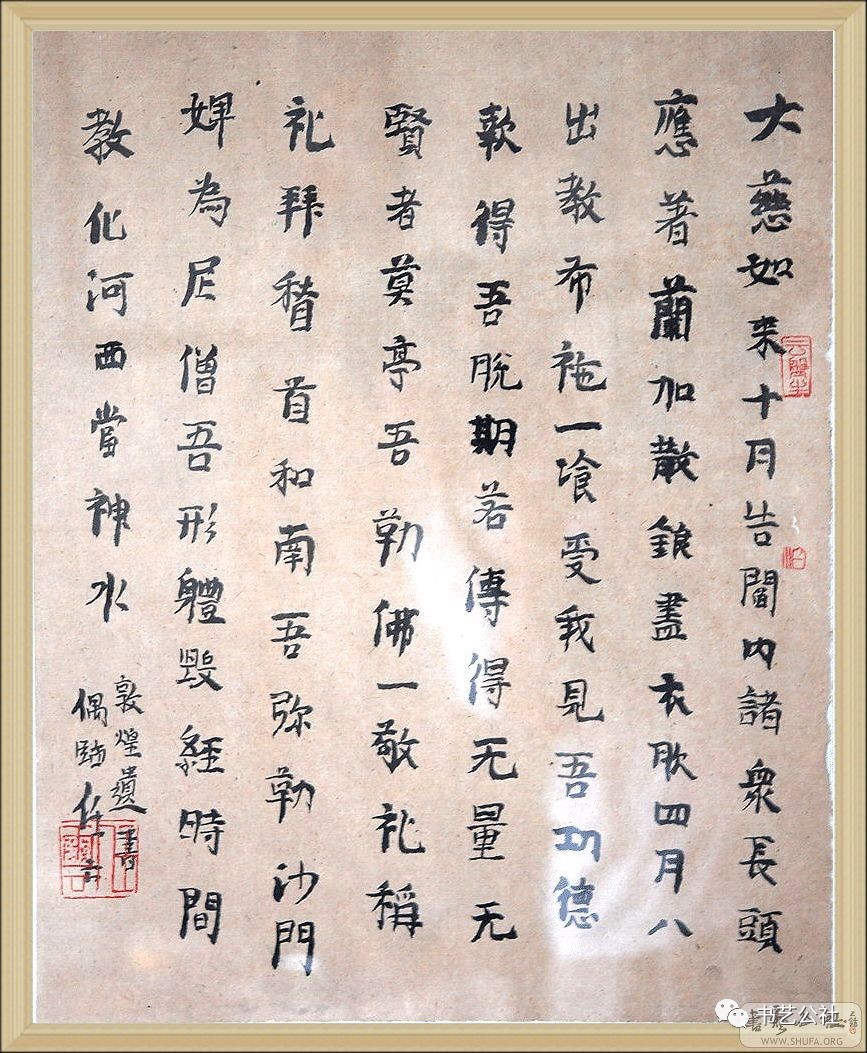 大慈如来十月告閻内諸衆長頭
應著蘭加散錦盡衣肷四月八
出教布袘一飡受我見吾功德
欶得吾脫期若傳得无量无
賢者莫亭吾勒佛一敬礼稱
礼拜稽首和南吾弥勒沙門
婢為尼僧吾形體毀經時間
教化河西當神水
敦煌遺書
偶臨
书艺公社
WWW.SHUFA.ORG